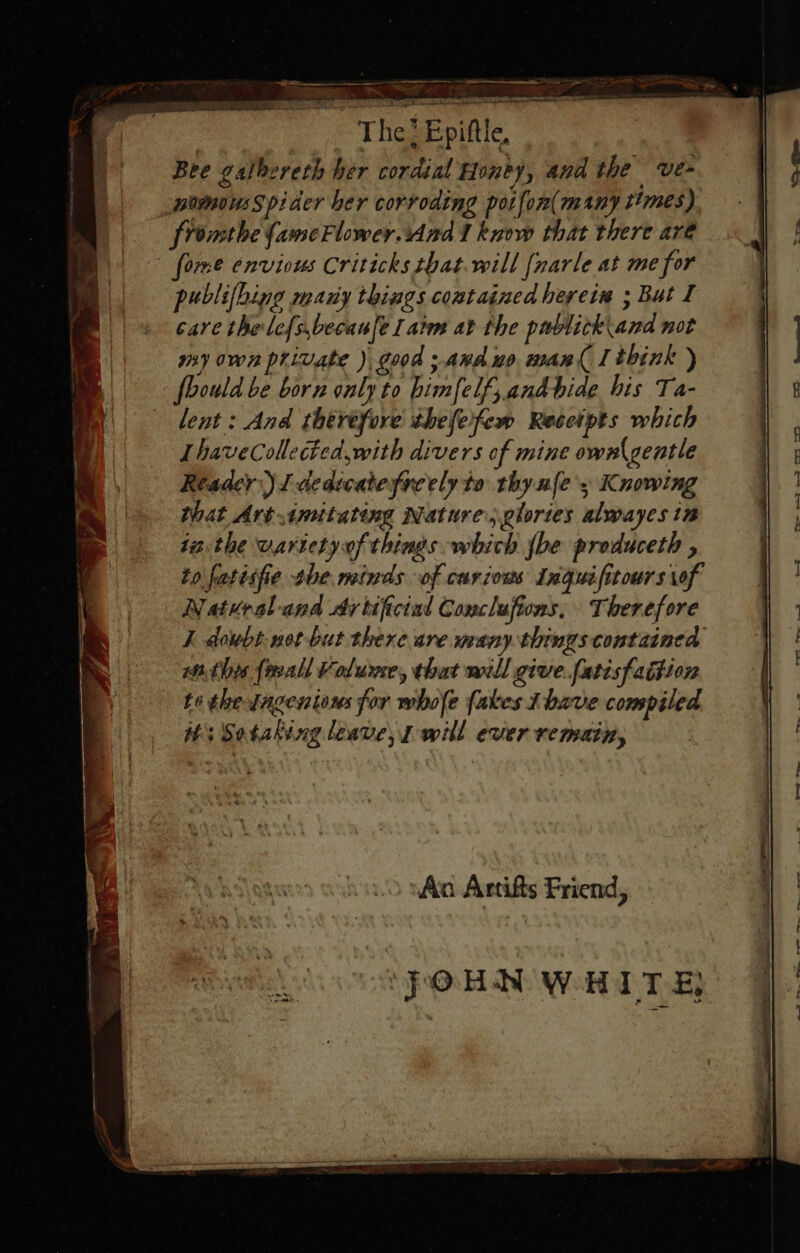 The Epiſtle,
Bee gathereth her cordial Honey, and the ve-
nomous Spider her corroding poiſon (many times)
from the ſame Flower. And I know that there are
ſome envious Criticks that will ſnarle at me for
publiſhing many things contained herein ; But I
care the leſs, becauſe I aim at the publick and not
my own private ) good ; and no man ( I think )
ſhould be born only to himſelf, and hide his Ta-
lent : And therefore theſe few Receipts which
I have Collected, with divers of mine own (gentle
Reader ) I dedicate freely to thy uſe ; Knowing
that Art imitating Nature, glories alwayes in
in the variety of things which ſhe produceth ,
to ſatisfie the minds of curious Inquiſitours of
Natural and Artificial Concluſions. Therefore
I doubt not but there are many things contained
in this ſmall Volume, that will give ſatisfaction
to the Ingenious for whoſe ſakes I have compiled
it : So taking leave, I will ever remain,
An Artiſts Friend,
JOHN WHITE;